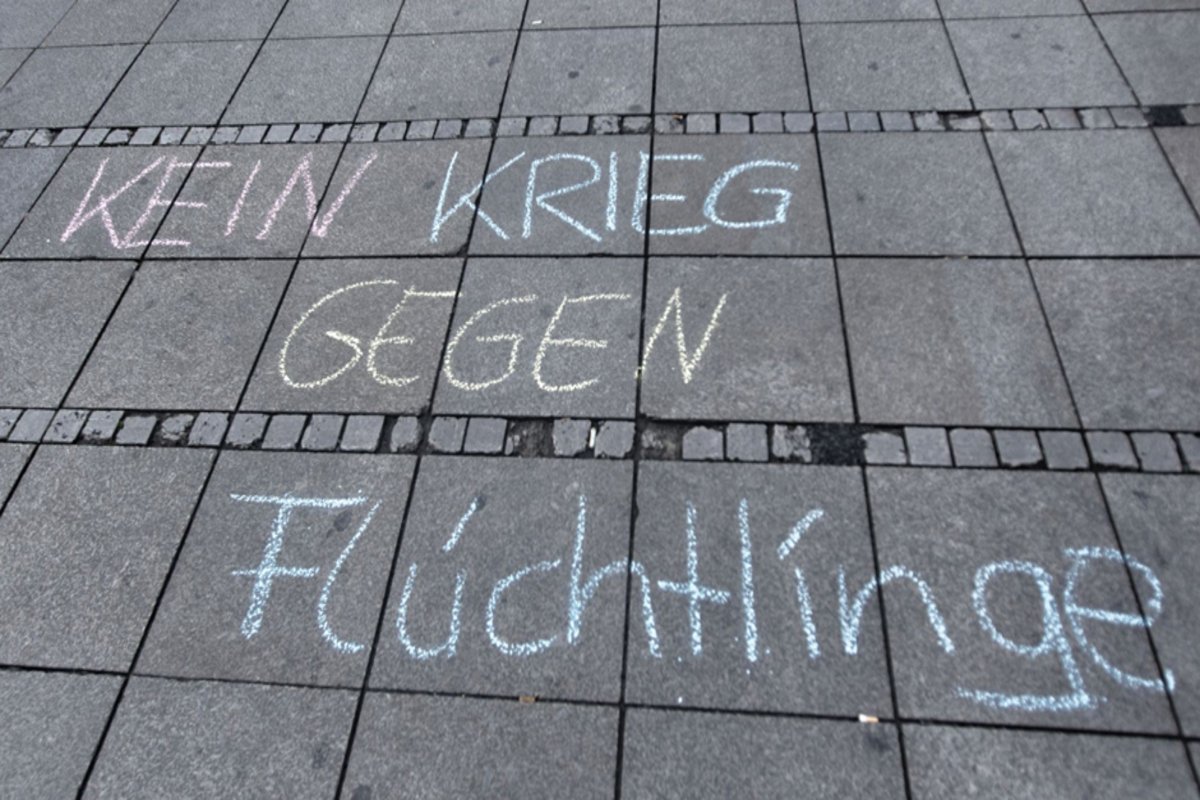 KEIN KRIEG
GEGEN
Flúchtlinge